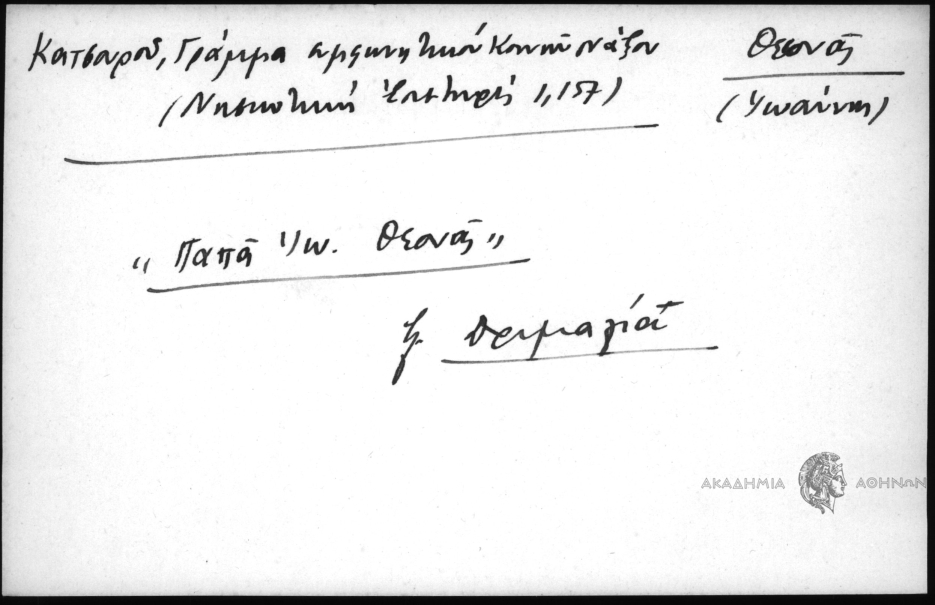 Κατσαρού, Γράμμα Κοινού Νάξου
(Νησιωτική Επετηρίς 1, 157)
Θεονάς
(Ιωάννης)
„ Παπᾶ Ιω. Θεονᾶς „
ΑΚΑΔΗΜΙΑ ΑΘΗΝΩΝ